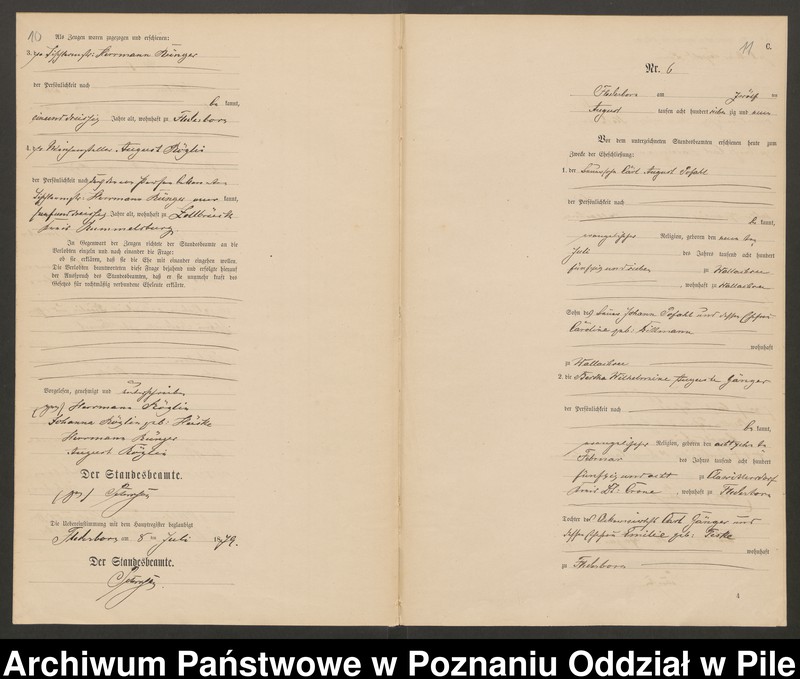 10
Als Zeugen waren zugezogen und erschienen:
3. der Herrmann Rünger
der Persönlichkeit nach
be kannt,
einunddreißig Jahre alt, wohnhaft zu Flederborn
4. der August Röglin
der Persönlichkeit nach
Herrmann Rünger kannt,
fünfunddreißig Jahre alt, wohnhaft zu
Kreis Rummelsburg
In Gegenwart der Zeugen richtete der Standesbeamte an die
Verlobten einzeln und nach einander die Frage:
ob sie erklären, daß sie die Ehe mit einander eingehen wollen.
Die Verlobten beantworteten diese Frage bejahend und erfolgte hierauf
der Ausspruch des Standesbeamten, daß er sie nunmehr kraft des
Gesetzes für rechtmäßig verbundene Eheleute erkläre.
Vorgelesen, genehmigt und unterschrieben
(gez) Herrmann Röglin
Johanna Röglin geb:
Herrmann Rünger
August Röglin
Der Standesbeamte.
(gez)
Die Uebereinstimmung mit dem Hauptregister beglaubigt
Flederborn am 8 ten Juli 1879.
Der Standesbeamte.
11
C.
Nr. 6
Flederborn am zwölf ten
August tausend acht hundert sieben zig und neun
Vor dem unterzeichneten Standesbeamten erschienen heute zum
Zwecke der Eheschließung:
1. der Carl August Pofahl
der Persönlichkeit nach
be kannt,
evangelischer Religion, geboren den neun ten
Juli des Jahres tausend acht hundert
fünfzig und sieben zu Wallachsee
, wohnhaft zu Wallachsee
Sohn des Johann Pofahl und dessen Ehefrau
Caroline geb: Dittmann
wohnhaft
zu Wallachsee
2. die Wilhelmine Auguste Gänger
der Persönlichkeit nach
be kannt,
evangelischer Religion, geboren den achtzehn ten
Februar des Jahres tausend acht hundert
fünfzig und acht zu Klawittersdorf
Kreis Dt: Crone, wohnhaft zu Flederborn
Tochter des Carl Gänger und
dessen Ehefrau Emilie geb: Feske
wohnhaft
zu Flederborn
4
Archiwum Państwowe w Poznaniu Oddział w Pile